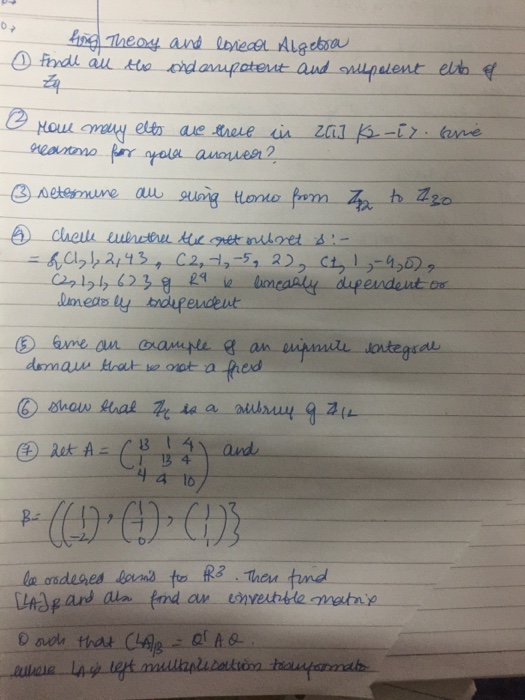 Ring Theory and Linear Algebra
① Find all the idempotent and nilpotent elts of
Z9
② How many elts are there in Z[i] / <2-i>. Give
reasons for your answer?
③ Determine all ring Homo from Z12 to Z30
④ Check whether the set subset S:-
= {(1,1,2,4), (2,-1,-5,2), (1,1,-4,0),
(2,1,1,6)} of R4 is linearly dependent or
linearly independent
⑤ Give an example of an infinite integral
domain that is not a field
⑥ Show that Z6 is a subring of Z12
⑦ Let A = (13 1 4 and
1 13 4
4 4 10)
β= {(1 1 -2), (1 -1 0), (1 1 1)}
be ordered basis for R3. Then find
[LA]β and also find an invertible matrix
Q such that [LA]β = Q-1 A Q.
where LA is left multiplication transformation